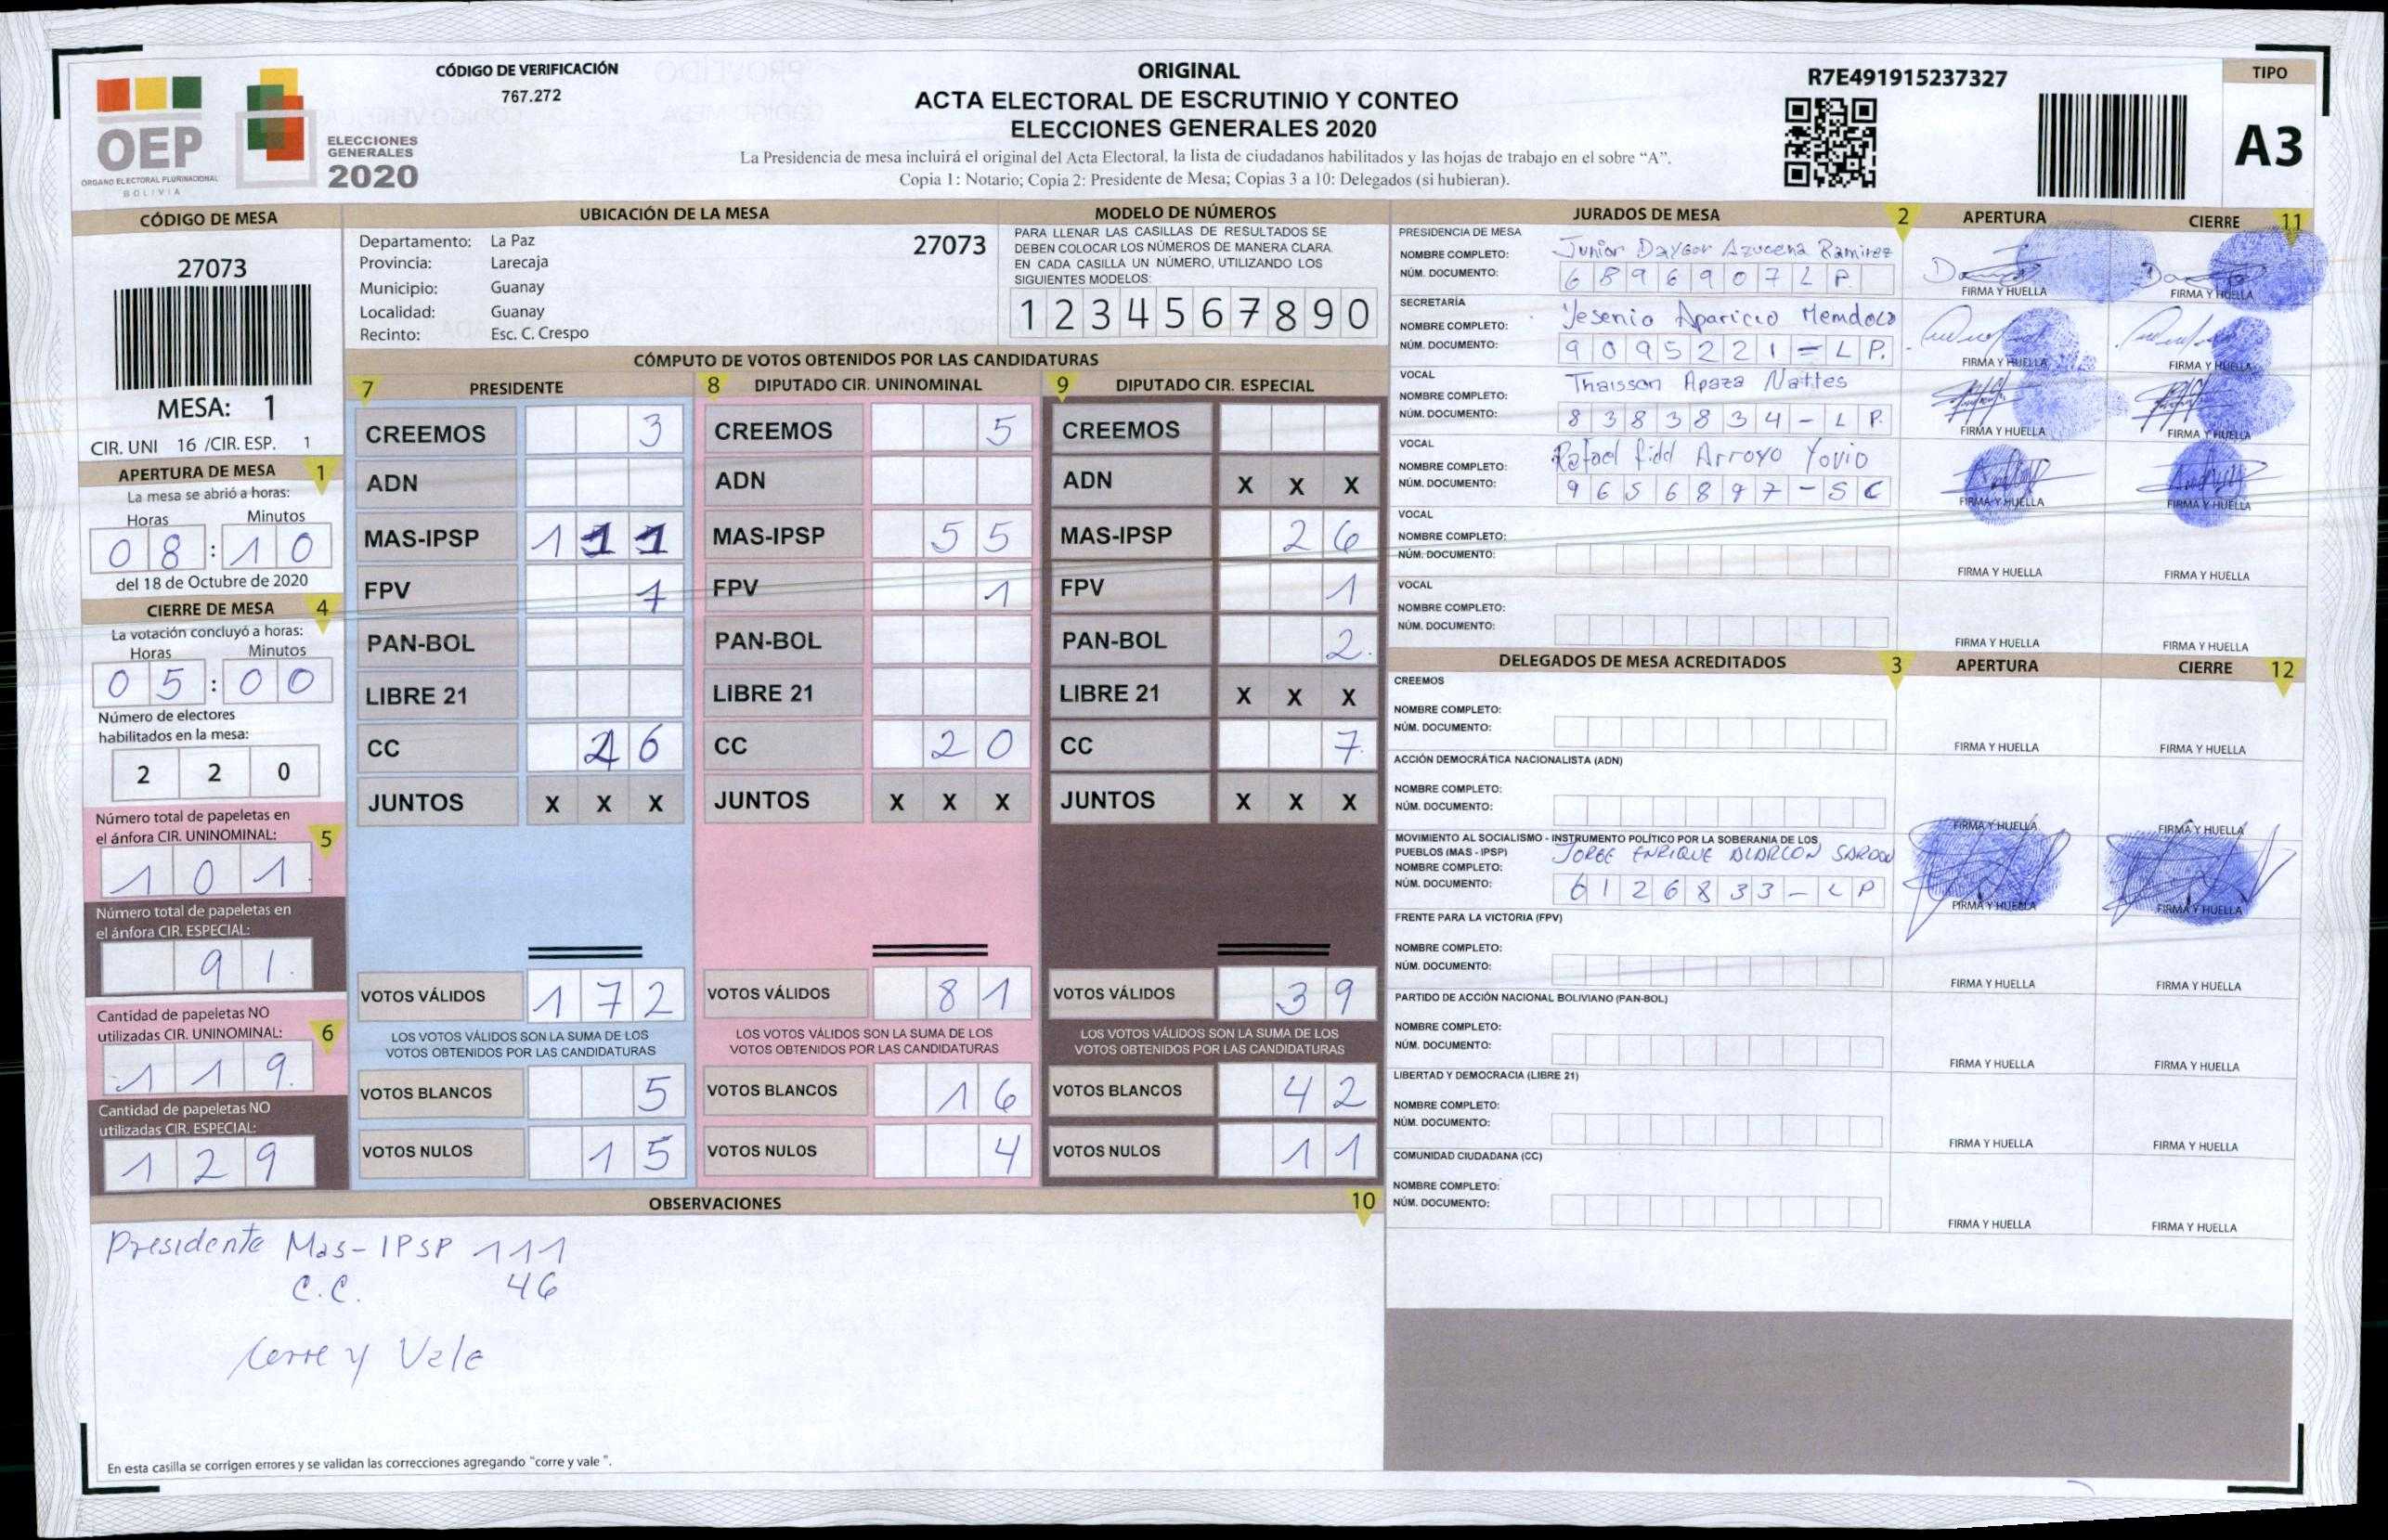 CÓDIGO DE VERIFICACIÓN
767.272
ORIGINAL
ACTA ELECTORAL DE ESCRUTINIO Y CONTEO
ELECCIONES GENERALES 2020
La Presidencia de mesa incluirá el original del Acta Electoral, la lista de ciudadanos habilitados y las hojas de trabajo en el sobre “A”.
Copia 1: Notario; Copia 2: Presidente de Mesa; Copias 3 a 10: Delegados (si hubieran).
R7E491915237327
TIPO
A3
OEP
ÓRGANO ELECTORAL PLURINACIONAL
BOLIVIA
ELECCIONES
GENERALES
2020
CÓDIGO DE MESA
27073
MESA: 1
CIR. UNI 16 /CIR. ESP. 1
APERTURA DE MESA 1
La mesa se abrió a horas:
Horas Minutos
08 : 10
del 18 de Octubre de 2020
CIERRE DE MESA 4
La votación concluyó a horas:
Horas Minutos
05 : 00
Número de electores
habilitados en la mesa:
2 2 0
Número total de papeletas en
el ánfora CIR. UNINOMINAL: 5
1 0 1
Número total de papeletas en
el ánfora CIR. ESPECIAL:
9 1.
Cantidad de papeletas NO
utilizadas CIR. UNINOMINAL: 6
1 1 9.
Cantidad de papeletas NO
utilizadas CIR. ESPECIAL:
1 2 9
UBICACIÓN DE LA MESA
Departamento: La Paz 27073
Provincia: Larecaja
Municipio: Guanay
Localidad: Guanay
Recinto: Esc. C. Crespo
MODELO DE NÚMEROS
PARA LLENAR LAS CASILLAS DE RESULTADOS SE
DEBEN COLOCAR LOS NÚMEROS DE MANERA CLARA
EN CADA CASILLA UN NÚMERO, UTILIZANDO LOS
SIGUIENTES MODELOS:
1 2 3 4 5 6 7 8 9 0
CÓMPUTO DE VOTOS OBTENIDOS POR LAS CANDIDATURAS
7 PRESIDENTE
CREEMOS 3
ADN
MAS-IPSP 1 1 1
FPV 1
PAN-BOL
LIBRE 21
CC 6
JUNTOS X X X
VOTOS VÁLIDOS 1 7 2
LOS VOTOS VÁLIDOS SON LA SUMA DE LOS
VOTOS OBTENIDOS POR LAS CANDIDATURAS
VOTOS BLANCOS 5
VOTOS NULOS 1 5
8 DIPUTADO CIR. UNINOMINAL
CREEMOS 5
ADN
MAS-IPSP 5 5
FPV 1
PAN-BOL
LIBRE 21
CC 2 0
JUNTOS X X X
VOTOS VÁLIDOS 8 1
LOS VOTOS VÁLIDOS SON LA SUMA DE LOS
VOTOS OBTENIDOS POR LAS CANDIDATURAS
VOTOS BLANCOS 1 6
VOTOS NULOS 4
9 DIPUTADO CIR. ESPECIAL
CREEMOS
ADN X X X
MAS-IPSP 2 6
FPV 1
PAN-BOL 2.
LIBRE 21 X X X
CC 7.
JUNTOS X X X
VOTOS VÁLIDOS 3 9
LOS VOTOS VÁLIDOS SON LA SUMA DE LOS
VOTOS OBTENIDOS POR LAS CANDIDATURAS
VOTOS BLANCOS 4 2
VOTOS NULOS 1 1
OBSERVACIONES 10
Presidente Mas-IPSP 111
C.C. 46
Corre y Vale
En esta casilla se corrigen errores y se validan las correcciones agregando "corre y vale ".
JURADOS DE MESA 2 APERTURA CIERRE 11
PRESIDENCIA DE MESA
NOMBRE COMPLETO: Junior Azucena Ramirez
NÚM. DOCUMENTO: 6 8 9 6 9 0 7 L P.
FIRMA Y HUELLA FIRMA Y HUELLA
SECRETARÍA
NOMBRE COMPLETO: Yesenia Aparicio
NÚM. DOCUMENTO: 9 0 9 5 2 2 1 = L P.
FIRMA Y HUELLA FIRMA Y HUELLA
VOCAL
NOMBRE COMPLETO: Thaisson Apaza Nattes
NÚM. DOCUMENTO: 8 3 8 3 8 3 4 - L P.
FIRMA Y HUELLA FIRMA Y HUELLA
VOCAL
NOMBRE COMPLETO: Rafael Arroyo
NÚM. DOCUMENTO: 9 6 5 6 8 9 7 - S C
FIRMA Y HUELLA FIRMA Y HUELLA
VOCAL
NOMBRE COMPLETO:
NÚM. DOCUMENTO:
FIRMA Y HUELLA FIRMA Y HUELLA
VOCAL
NOMBRE COMPLETO:
NÚM. DOCUMENTO:
FIRMA Y HUELLA FIRMA Y HUELLA
DELEGADOS DE MESA ACREDITADOS 3 APERTURA CIERRE 12
CREEMOS
NOMBRE COMPLETO:
NÚM. DOCUMENTO:
FIRMA Y HUELLA FIRMA Y HUELLA
ACCIÓN DEMOCRÁTICA NACIONALISTA (ADN)
NOMBRE COMPLETO:
NÚM. DOCUMENTO:
FIRMA Y HUELLA FIRMA Y HUELLA
MOVIMIENTO AL SOCIALISMO - INSTRUMENTO POLÍTICO POR LA SOBERANIA DE LOS
PUEBLOS (MAS - IPSP) JORGE ENRIQUE ALARCON
NOMBRE COMPLETO:
NÚM. DOCUMENTO: 6 1 2 6 8 3 3 - L P
FIRMA Y HUELLA FIRMA Y HUELLA
FRENTE PARA LA VICTORIA (FPV)
NOMBRE COMPLETO:
NÚM. DOCUMENTO:
FIRMA Y HUELLA FIRMA Y HUELLA
PARTIDO DE ACCIÓN NACIONAL BOLIVIANO (PAN-BOL)
NOMBRE COMPLETO:
NÚM. DOCUMENTO:
FIRMA Y HUELLA FIRMA Y HUELLA
LIBERTAD Y DEMOCRACIA (LIBRE 21)
NOMBRE COMPLETO:
NÚM. DOCUMENTO:
FIRMA Y HUELLA FIRMA Y HUELLA
COMUNIDAD CIUDADANA (CC)
NOMBRE COMPLETO:
NÚM. DOCUMENTO:
FIRMA Y HUELLA FIRMA Y HUELLA